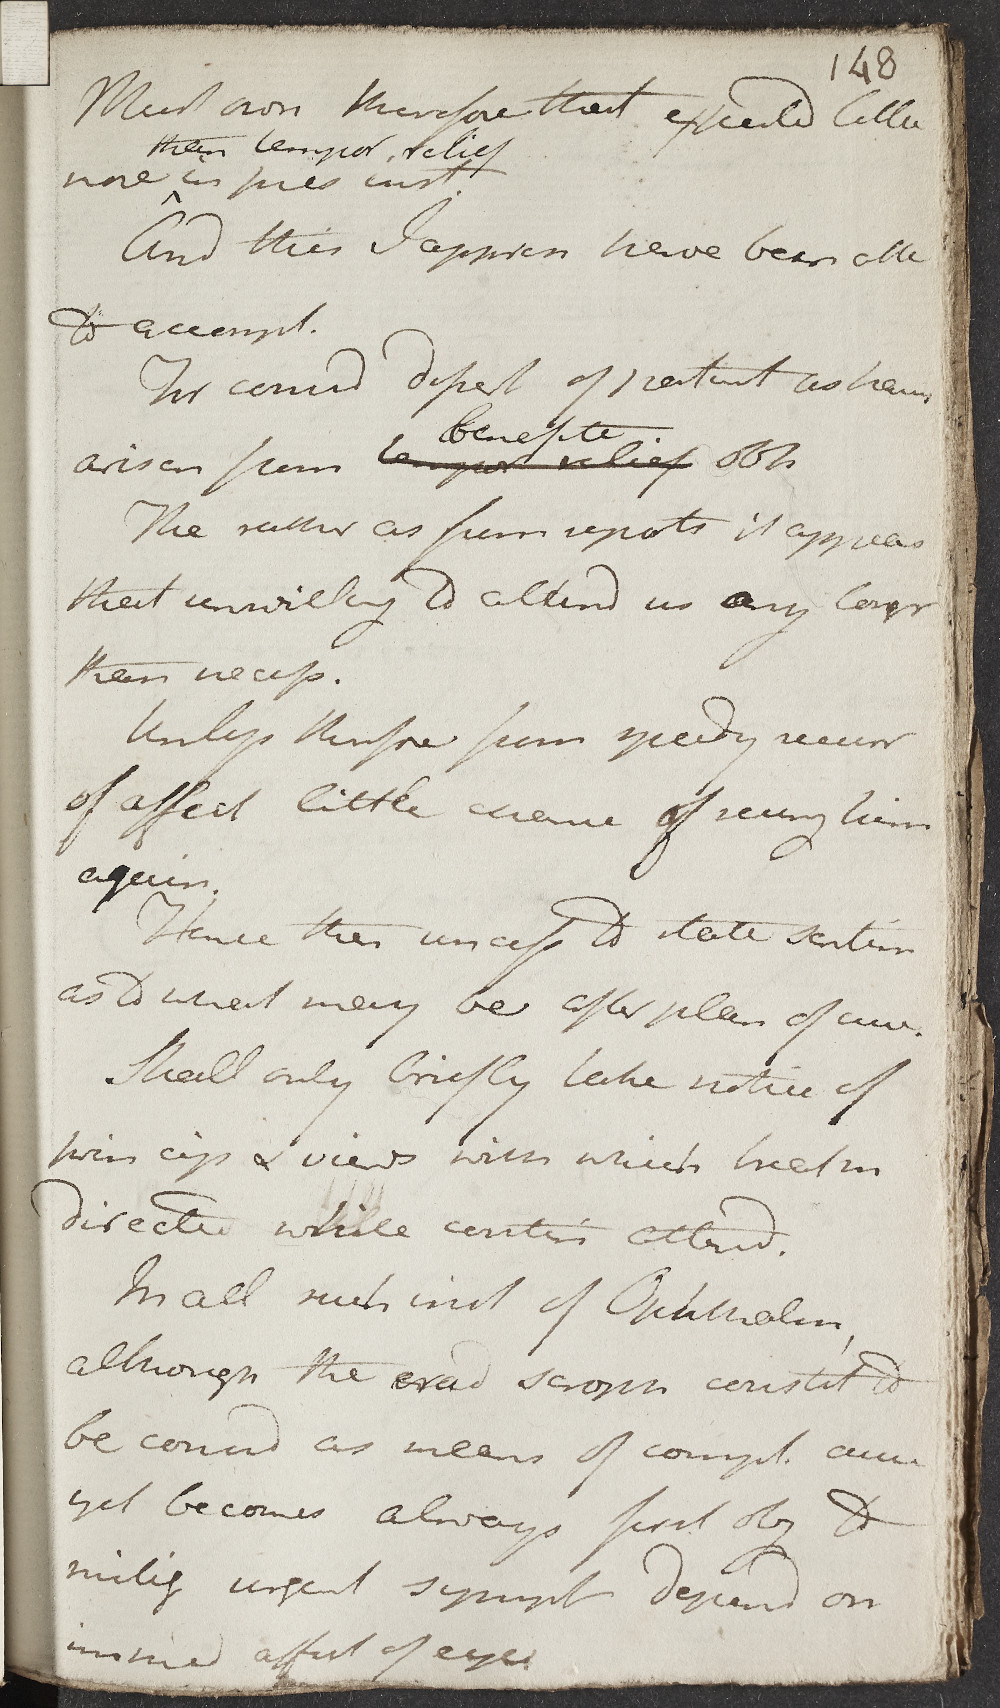 148
Must own therefore that expected little
than tempor. relief
more in pres inst.
And this I apprehn have been able
to accompl.
For consid depart of patient as havg
benefite
arisen from tempor relief obtn
The rather as from reports it appears
that unwillg to attend us any longr
than necess.
Unless therefore from speedy recurr
of affect little chance of seeing him
again.
Hence then unnecess to state sentim
as to what may be after plan of cure.
Shall only briefly take notice of
princip & views with which treatm
directed while contin attend.
In all such inst of Ophthalm,
although the erad scroph constit to
be consid as means of compl. cure
yet becomes always first obj to
mitig urgent sympt depend on
immed affect of eyes